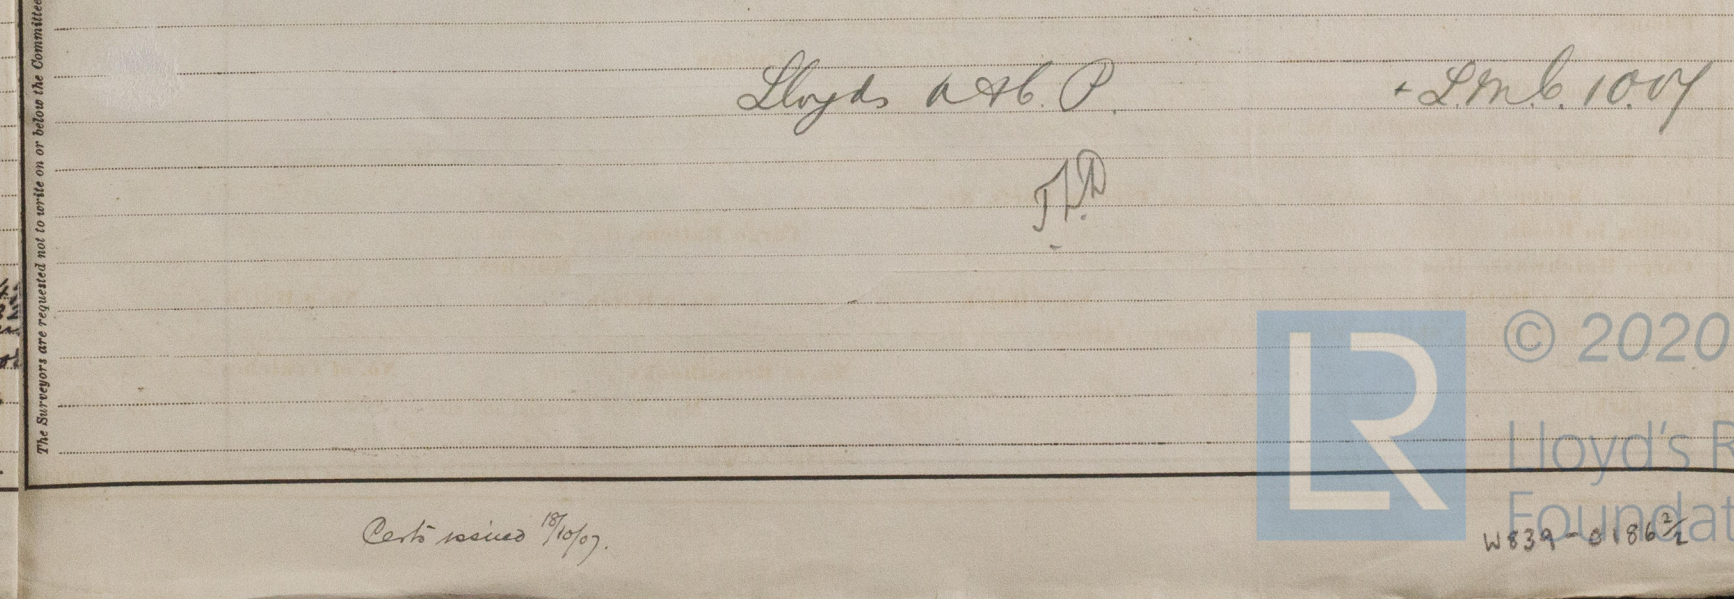 The Surveyors are requested not to write on or below the Committee
Lloyds A & C. P. + L.M.C. 10.07
F.D.
Certs issued 18/10/07.
LR
© 2020
Lloyd's R
Foundat
W839-0186 2/2